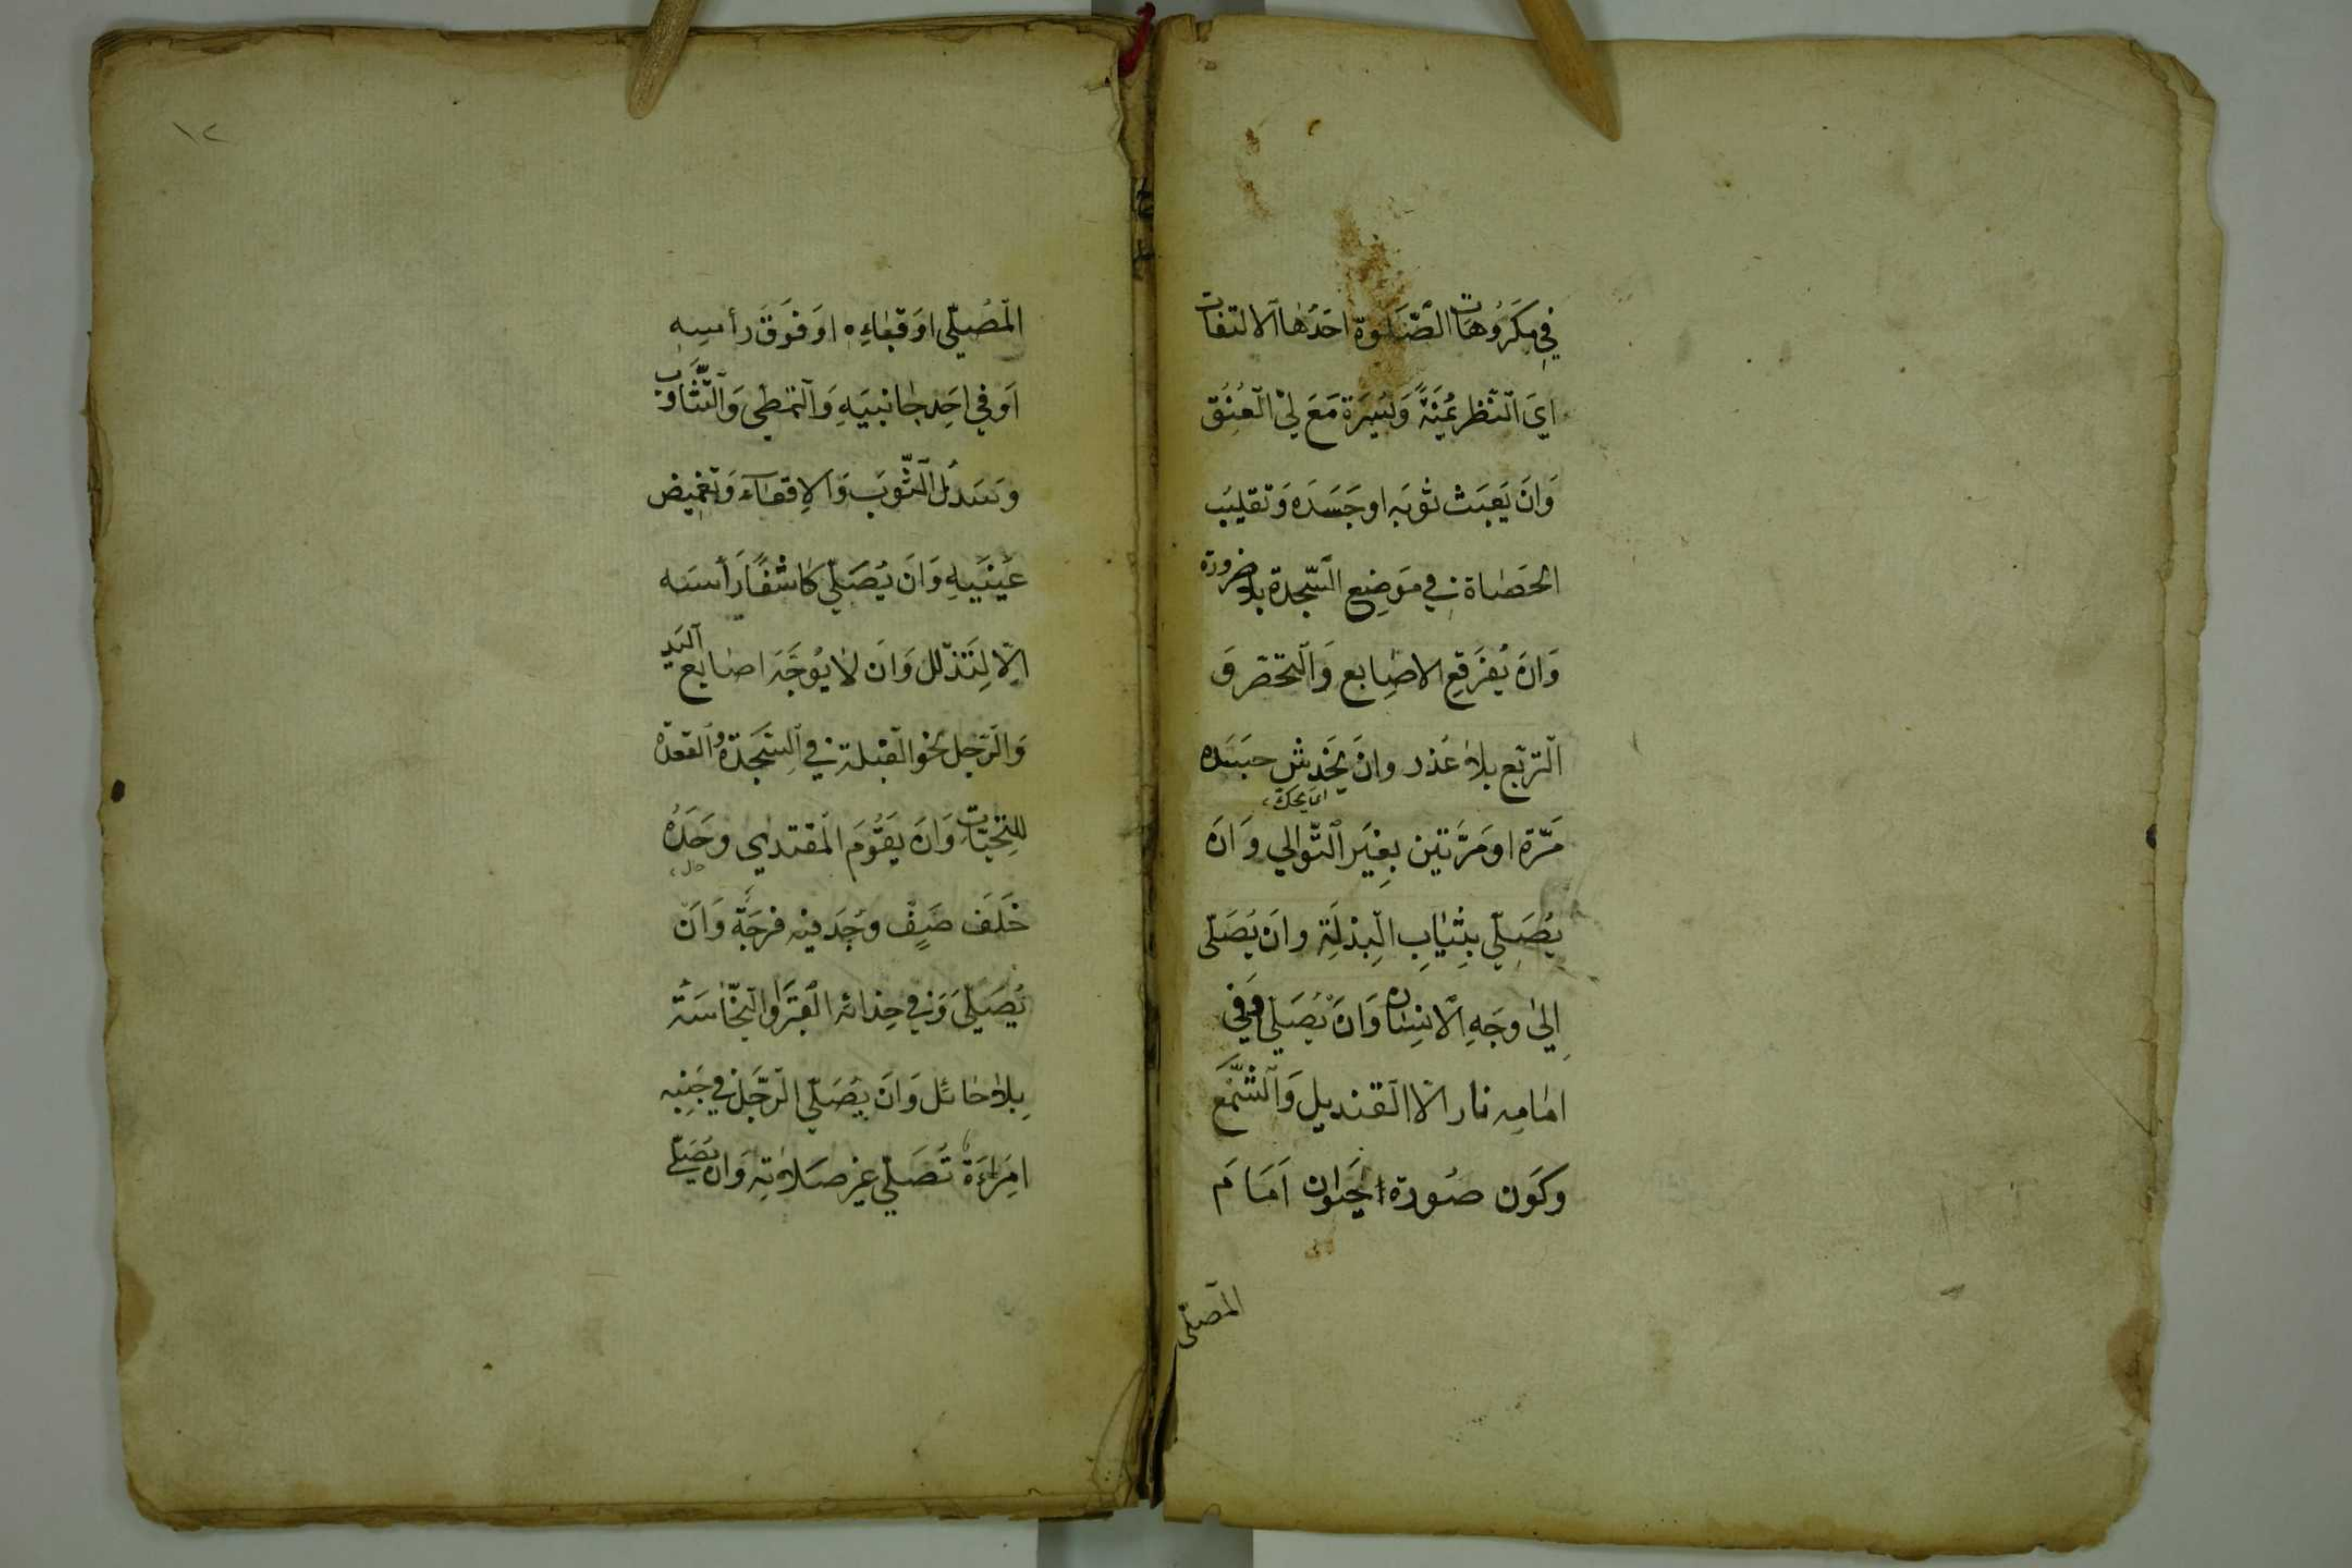 في مكروهات الصلوة احدها الالتفات
اي النظر يمنة ويسرة مع لي العنق
وان يعبث ثوبه او جسده وتقليب
الحصاة في موضع السجدة بلا ضرورة
وان يفرقع الاصابع والتخصر و
التربع بلا عذر وان يخدش جسده
اي يحك
مرة او مرتين بغير التوالي وان
يصلي بثياب البذلة وان يصلى
الى وجه الانسان وان يصلي وفي
امامه نار الا القنديل والشمع
وكون صورة الحيوان امام
المصلى
١٢
المصلي او قفاءه او فوق رأسه
او في احد جانبيه والتمطي والتثاوب
وسدل الثوب والاقعاء وتغميض
عينيه وان يصلي كاشفا رأسه
الا لتذلل وان لا يوجه اصابع اليد
والرجل نحو القبلة في السجدة والقعدة
للتحيات وان يقوم المقتدي وحده
خلف صف وجد فيه فرجة وان
يصلي وفي حذائه القبر او النجاسة
بلا حائل وان يصلي الرجل في جنبه
امراءة تصلي غير صلاته وان يصلي